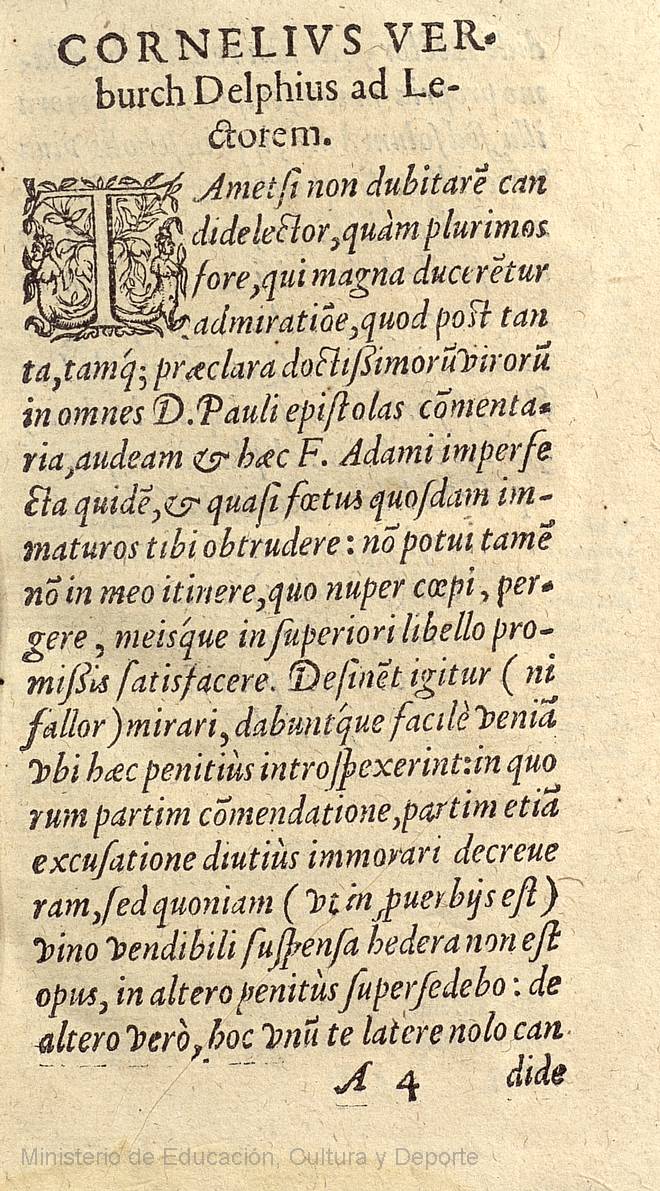 CORNELIVS VER-
burch Delphius ad Le-
ctorem.
TAmetſi non dubitarē can
didelector, quàm plurimos
fore, qui magna ducerētur
admiratiōe, quod poſt tan
ta, tamq́; præclara doctiſsimorū virorū
in omnes D. Pauli epiſtolas cōmenta-
ria, audeam & hæc F. Adami imperfe
cta quidē, & quaſi fœtus quoſdam im-
maturos tibi obtrudere: nō potui tamē
nō in meo itinere, quo nuper cœpi, per-
gere, meiſq́ue in ſuperiori libello pro-
miſsis ſatisfacere. Deſinēt igitur (ni
fallor) mirari, dabuntq́ue facilè veniā
vbi hæc penitiùs introſpexerint: in quo
rum partim cōmendatione, partim etiā
excuſatione diutiùs immorari decreue
ram, ſed quoniam (vt in ꝓuerbijs eſt)
vino vendibili ſuſpenſa hedera non eſt
opus, in altero penitùs ſuperſedebo: de
altero verò, hoc vnū te latere nolo can
A 4 dide
Ministerio de Educación, Cultura y Deporte